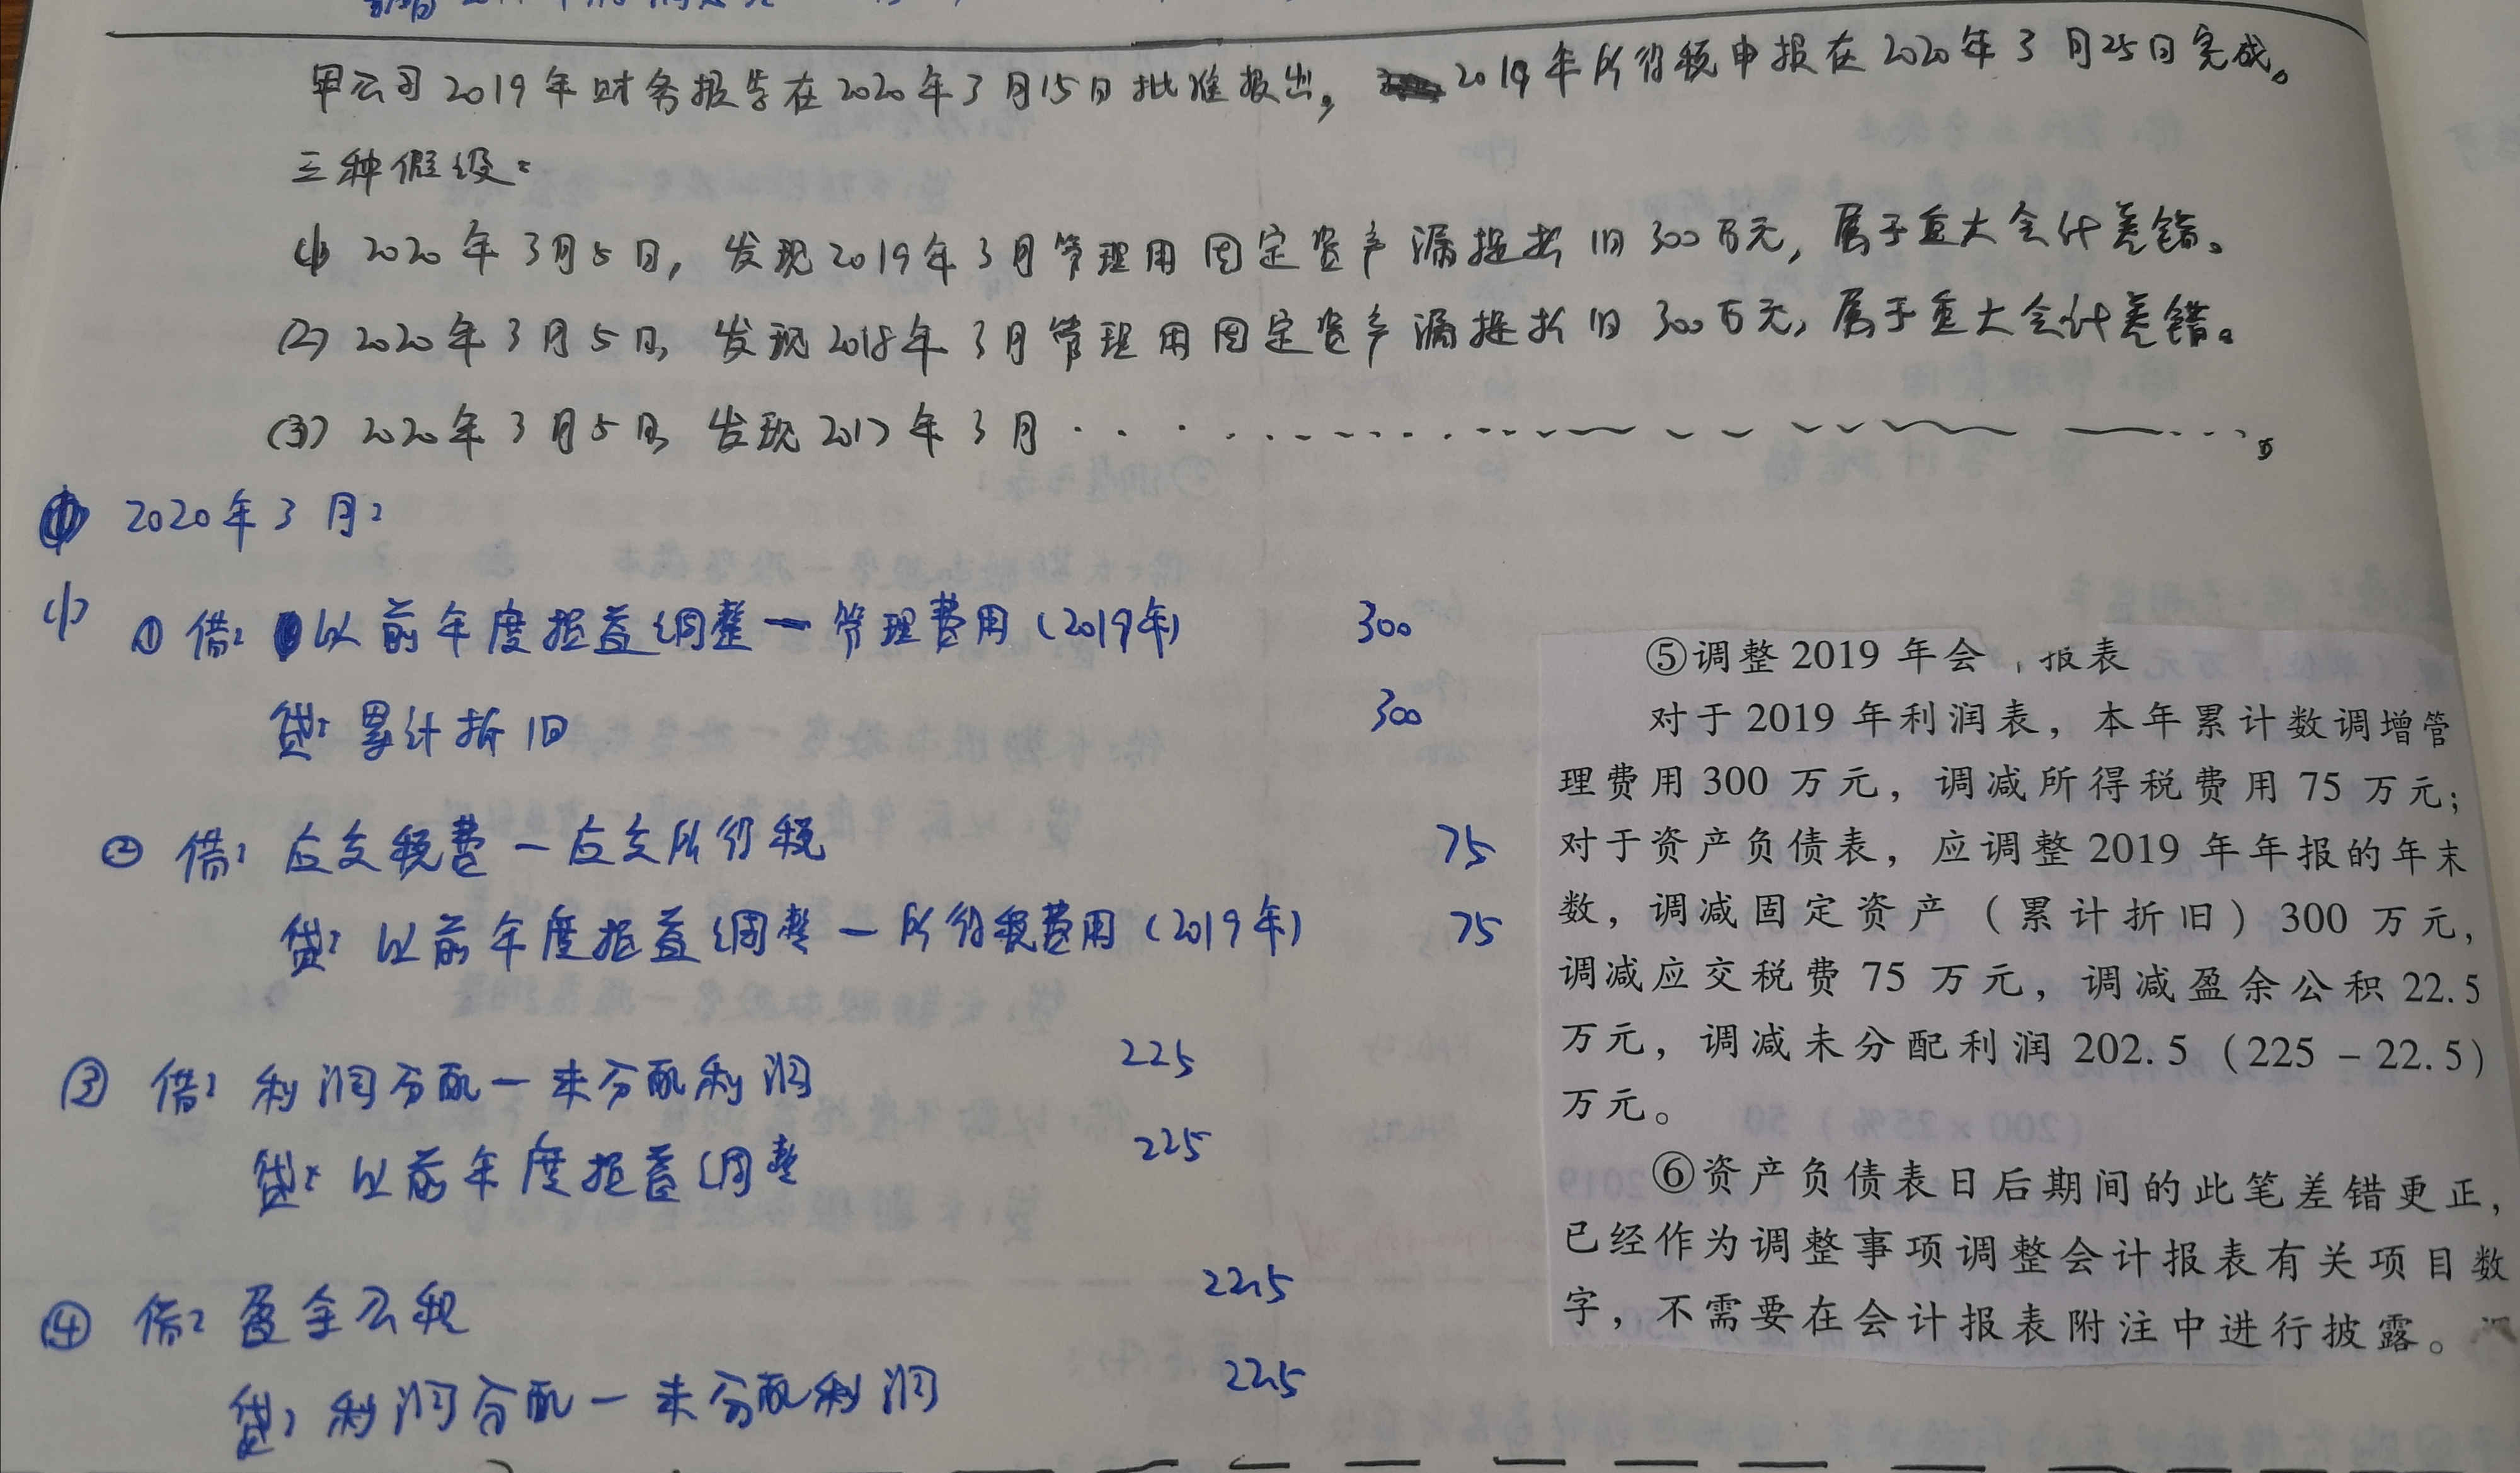 甲公司2019年财务报告在2020年3月15日批准报出，2019年所得税申报在2020年3月25日完成。
三种假设：
(1) 2020年3月5日，发现2019年3月管理用固定资产漏提折旧300万元，属于重大会计差错。
(2) 2020年3月5日，发现2018年3月管理用固定资产漏提折旧300万元，属于重大会计差错。
(3) 2020年3月5日，发现2017年3月
2020年3月：
(1)
①借：以前年度损益调整一管理费用(2019年) 300
贷：累计折旧 300
②借：应交税费一应交所得税 75
贷：以前年度损益调整一所得税费用(2019年) 75
③借：利润分配一未分配利润 225
贷：以前年度损益调整 225
④借：盈余公积 22.5
贷：利润分配一未分配利润 22.5
⑤调整 2019 年会 报表
对于 2019 年利润表，本年累计数调增管
理费用 300 万元，调减所得税费用 75 万元；
对于资产负债表，应调整 2019 年年报的年末
数，调减固定资产（累计折旧）300 万元，
调减应交税费 75 万元，调减盈余公积 22.5
万元，调减未分配利润 202.5（225－22.5）
万元。
⑥资产负债表日后期间的此笔差错更正，
已经作为调整事项调整会计报表有关项目数
字，不需要在会计报表附注中进行披露。